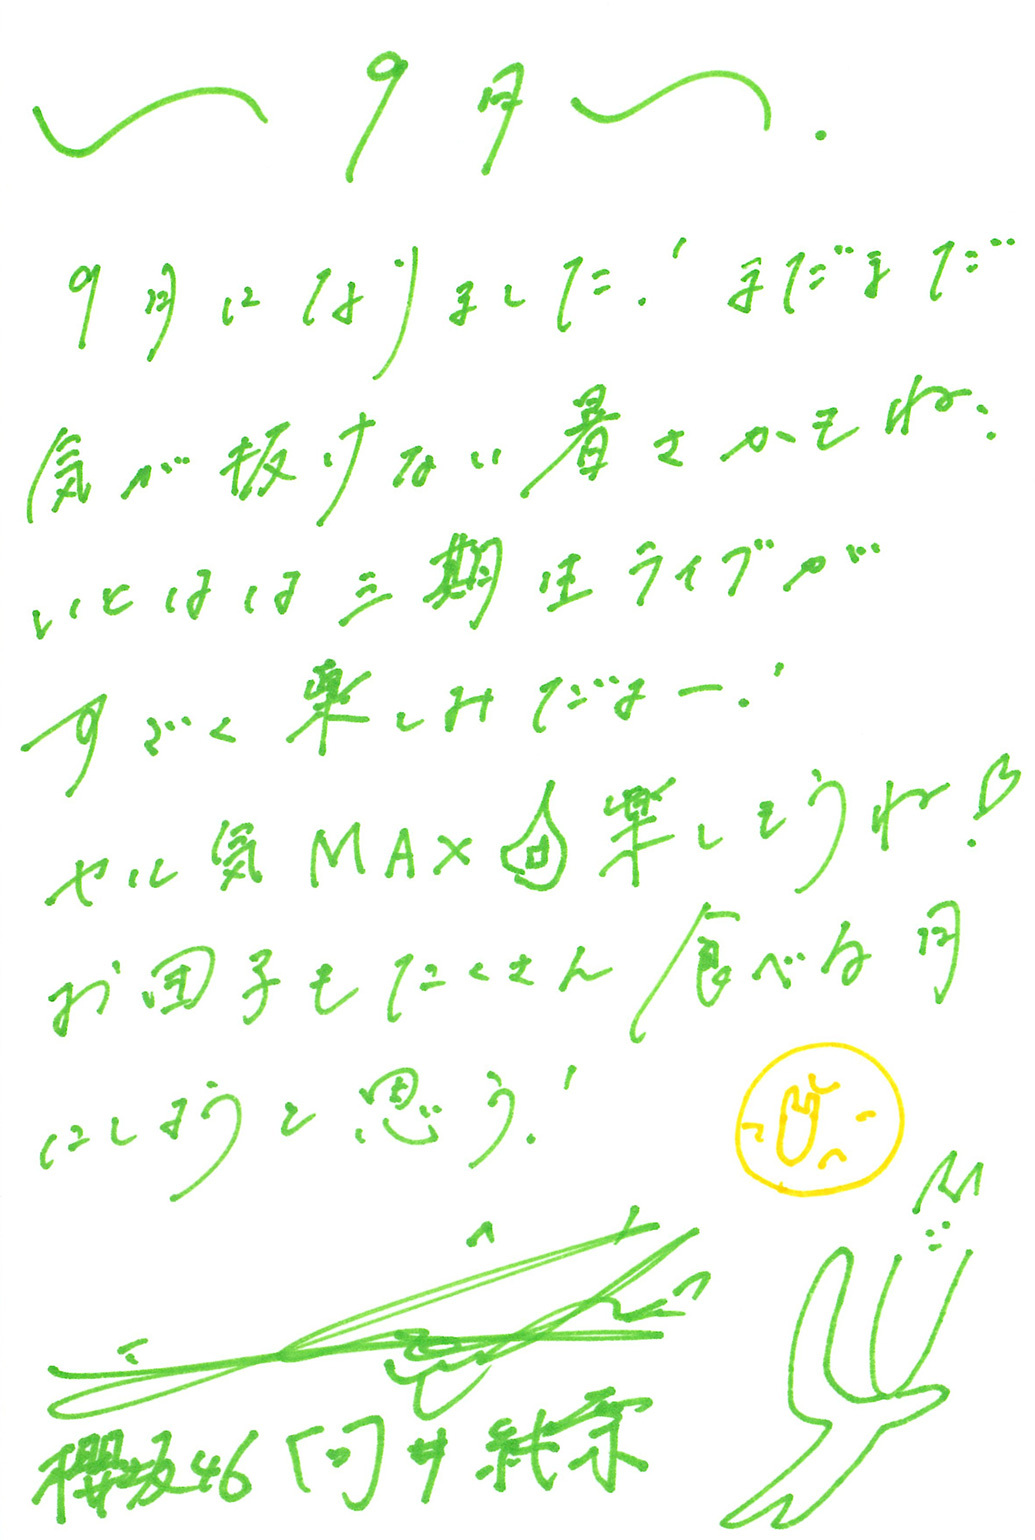 〜9月〜.
9月になりました!まだまだ
気が抜けない暑さかもね.
いとはは三期生ライブが
すごく楽しみだよー!
やる気MAX 楽しもうね!
お団子もたくさん食べる月
にしようと思う!
櫻坂46 向井純葉